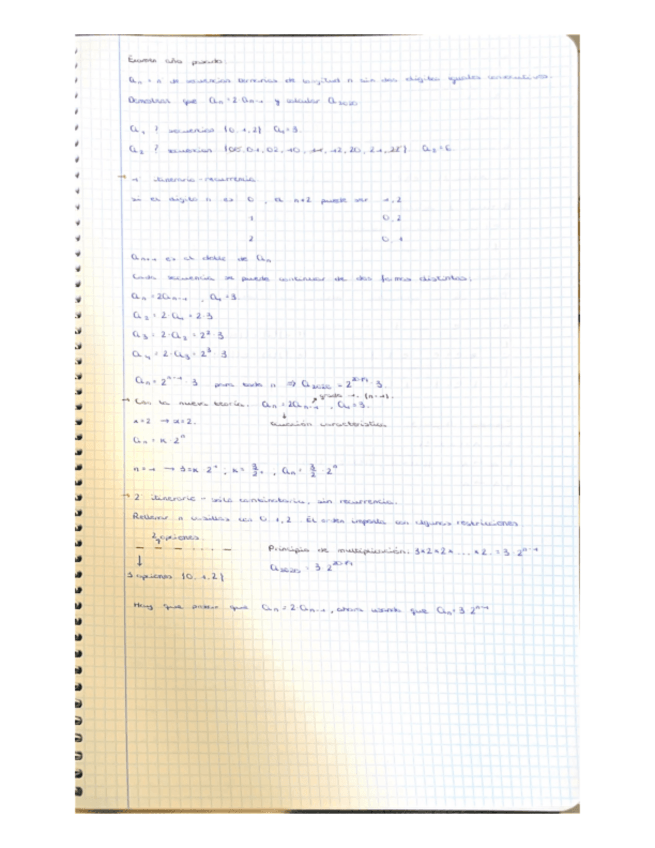 Examen año pasado:
an = n de secuencias ternarias de longitud n sin dos dígitos iguales consecutivos.
Demostrar que an = 2 an-1 y calcular a2020
a1 ? secuencias {0, 1, 2} a1 = 3.
a2 ? secuencias {00, 01, 02, 10, 11, 12, 20, 21, 22} a2 = 6.
→ 1 itinerario - recurrencia
si el dígito n es 0, el n+2 puede ser 1, 2
1 0, 2
2 0, 1
an+1 es el doble de an
Cada secuencia se puede continuar de dos formas distintas.
an = 2an-1, a1 = 3.
a2 = 2·a1 = 2·3
a3 = 2·a2 = 2²·3
a4 = 2·a3 = 2³·3
an = 2^n-1 · 3 para todo n ⇒ a2020 = 2^2019 · 3.
grado 1. (n-1).
→ Con la nueva teoría. an = 2an-1, a1 = 3.
x = 2 → x = 2. ecuación característica
an = k · 2^n
n = 1 → 3 = k · 2^1 ; k = 3/2, an = 3/2 · 2^n
→ 2 itinerario - solo combinatoria, sin recurrencia.
Rellenar n casillas con 0, 1, 2. El orden importa con algunas restricciones
2 opciones
Principio de multiplicación. 3×2×2× ... ×2 = 3 · 2^n-1
a2020 = 3 · 2^2019
3 opciones {0, 1, 2}
Hay que probar que an = 2·an-1, ahora usando que an = 3 2^n-1